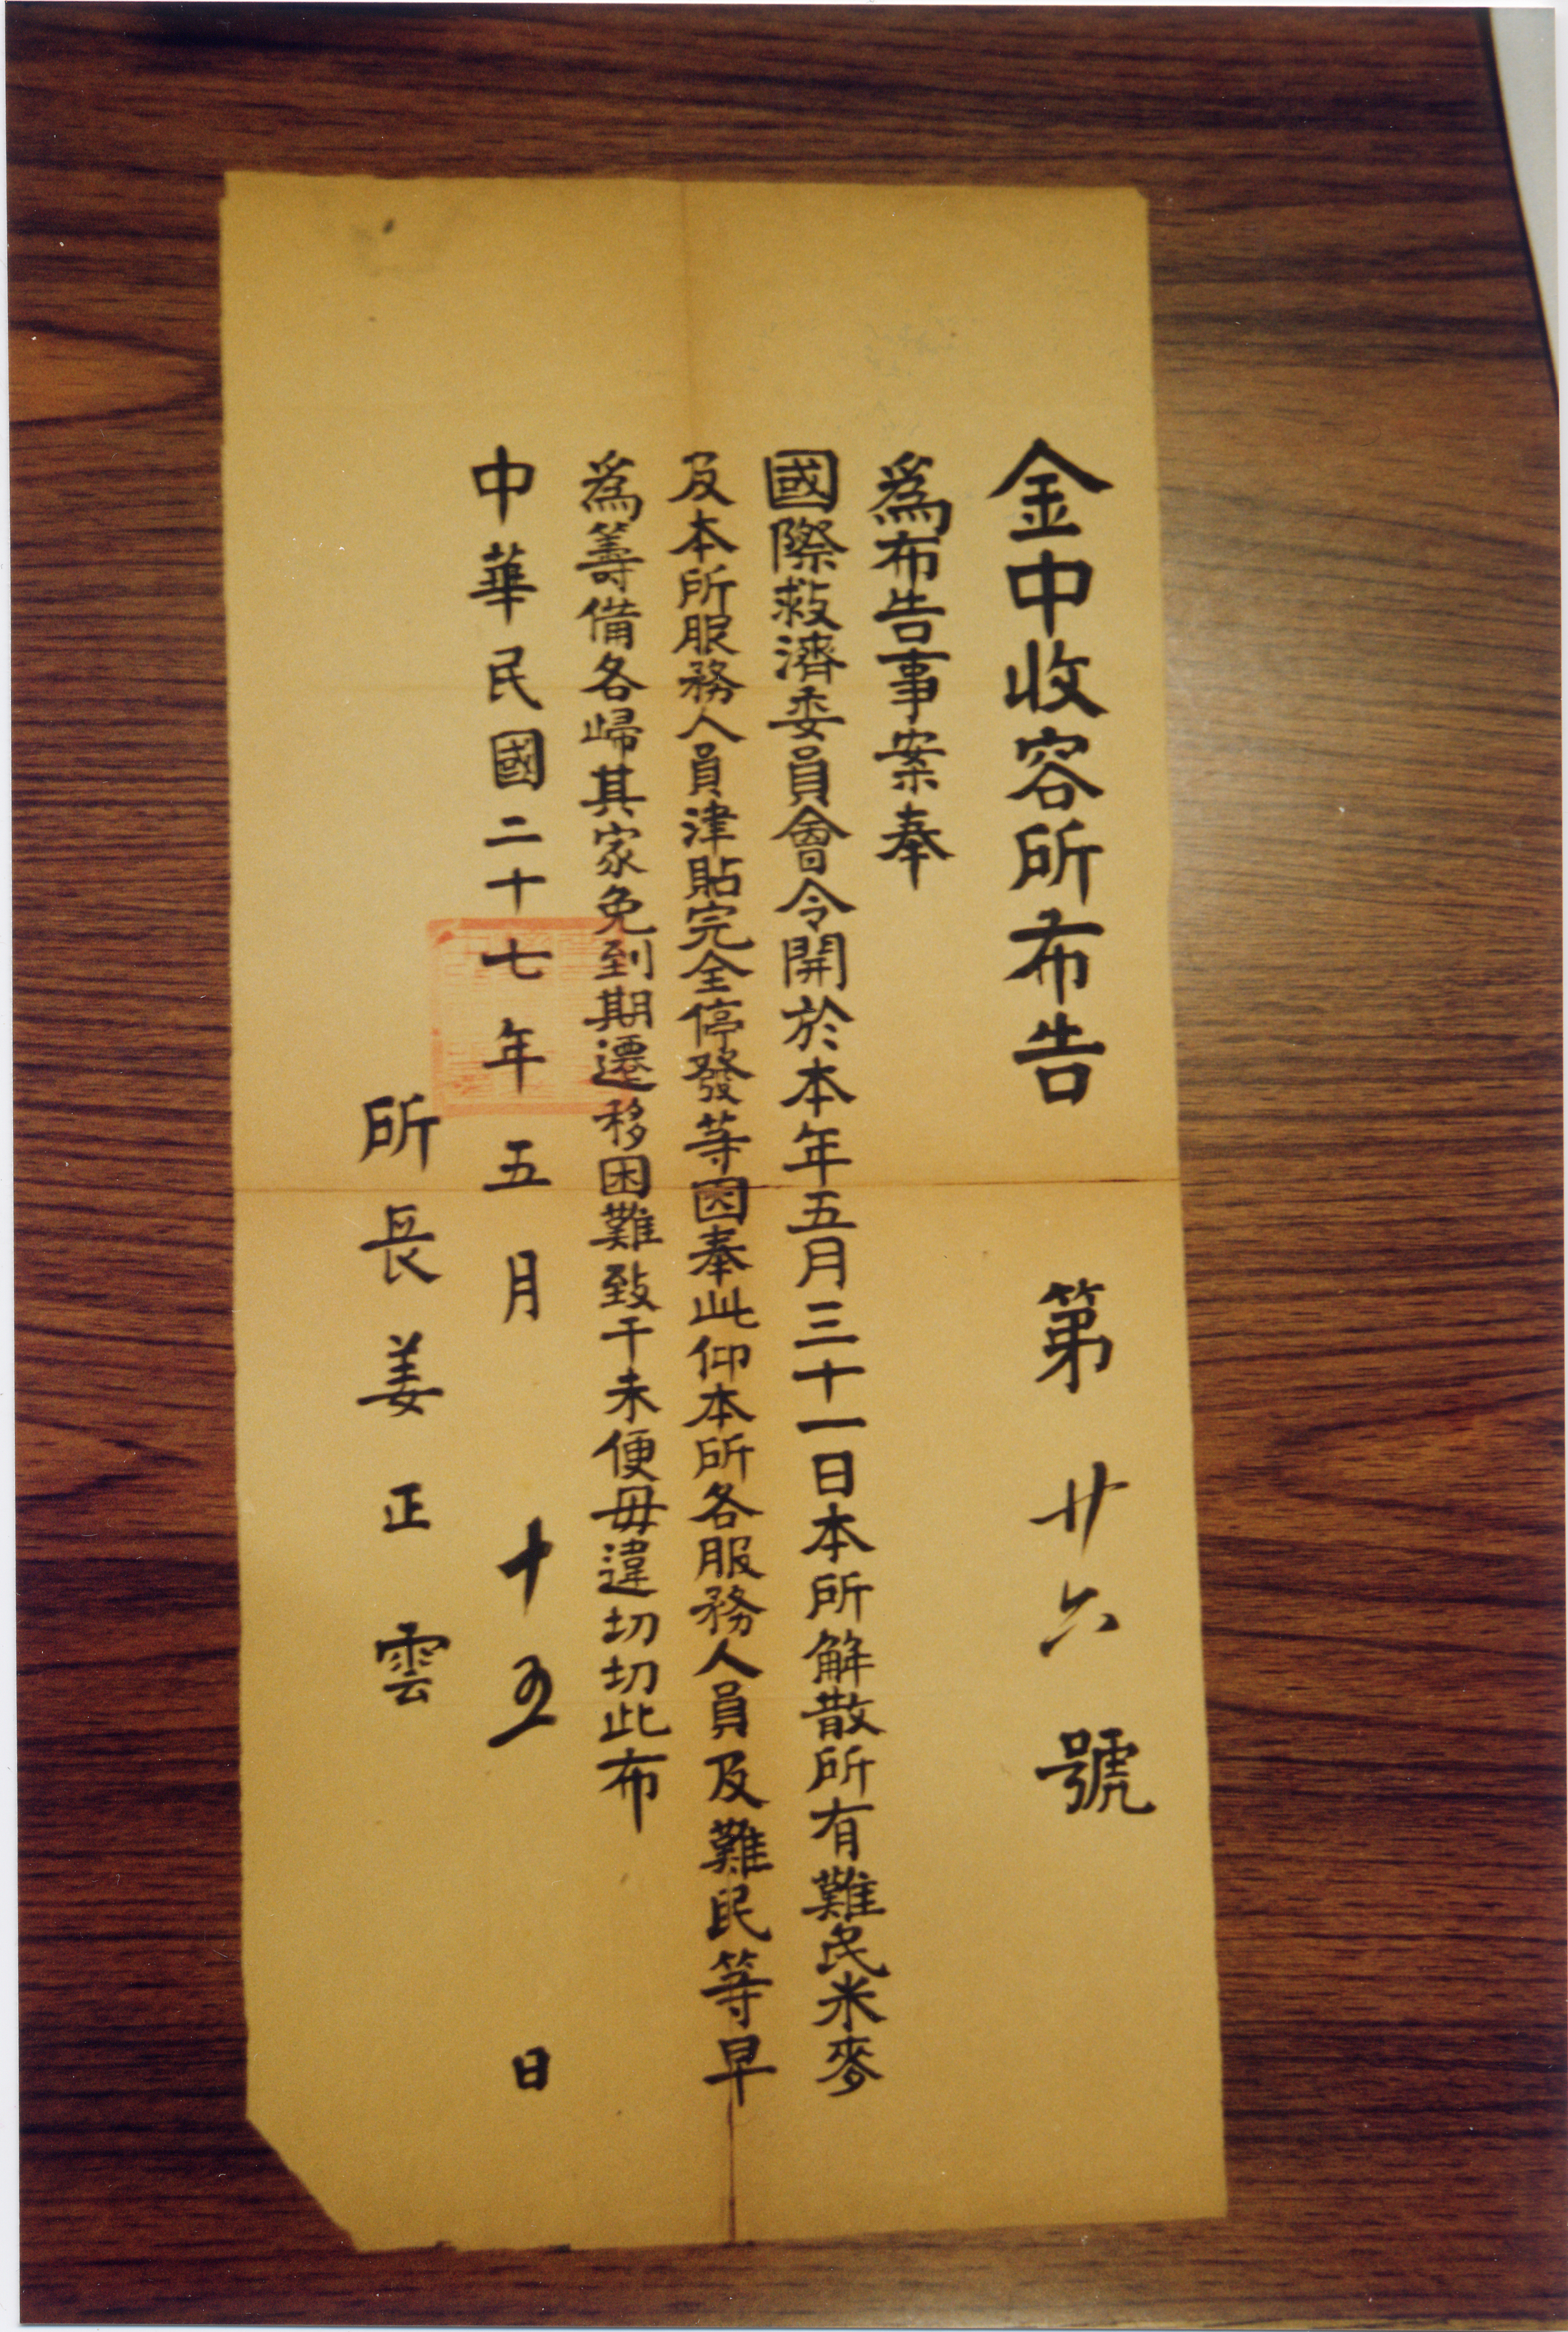 金中收容所布告 第廿六號
爲布告事案奉
國際救濟委員會令開於本年五月三十一日本所解散所有難民米麥
及本所服務人員津貼完全停發等因奉此仰本所各服務人員及難民等早
爲籌備各歸其家免到期遷移困難致干未便毋違切切此布
中華民國二十七年五月十五日
所長姜正雲